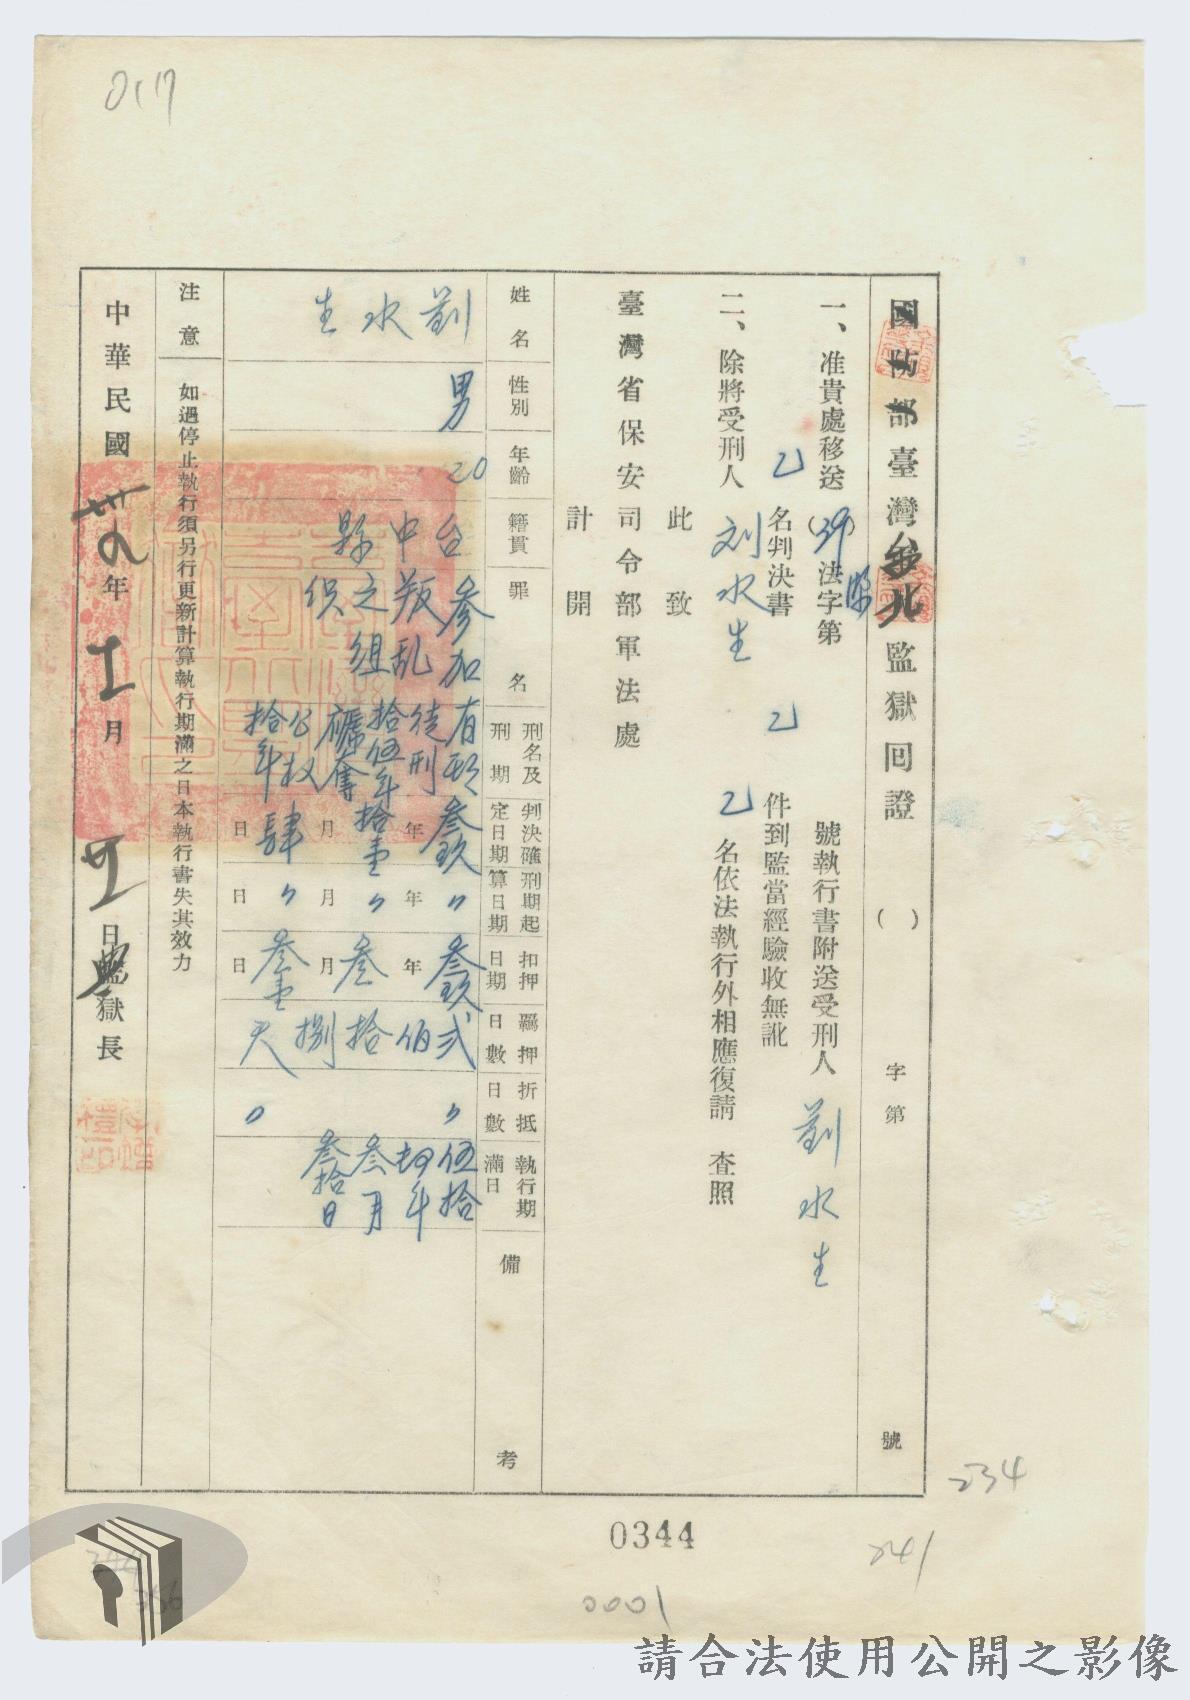 017
國防部臺灣台北監獄回證 （ ） 字第 號
一、准貴處移送(39)法字第 號執行書附送受刑人劉水生
乙名判決書乙件到監當經驗收無訛
二、除將受刑人刘水生乙名依法執行外相應復請 查照
此致
臺灣省保安司令部軍法處
計開
姓名
性別
年齡
籍貫
罪名
刑名及刑期
判決確定日期
刑期起算日期
扣押日期
羈押日數
折抵日數
執行期滿日
備考
劉水生
男
20
台中縣
參加叛乱之組织
有期徒刑拾伍年褫奪公权拾年
叁玖年拾壹月肆日
〃年〃月〃日
叁玖年叁月叁壹日
弍佰拾捌天
〃 〃
伍拾肆年叁月叁拾日
注意 如過停止執行須另行更新計算執行期滿之日本執行書失其效力
中華民國 年 月 日 監獄長
234
241
0344
0001
請合法使用公開之影像